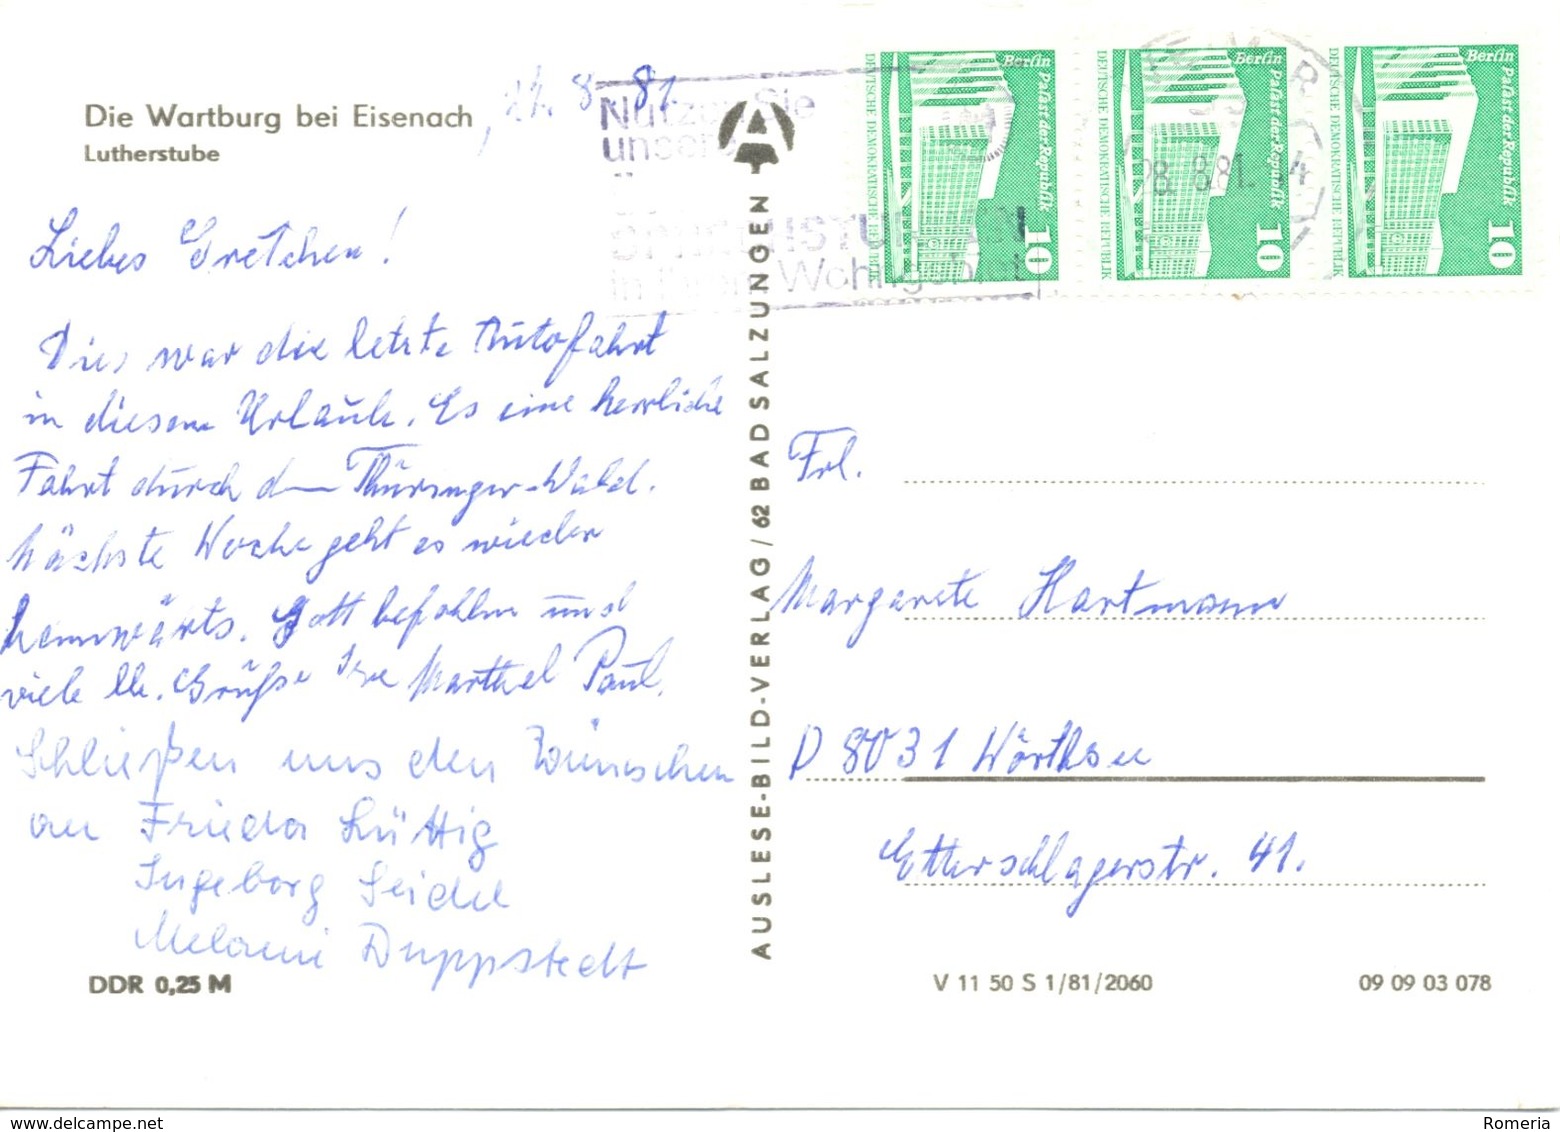 Die Wartburg bei Eisenach, 22. 8. 81
Lutherstube
Nutzen Sie
unsere
in Ihrem Wohngebiet
28. 8. 81
Berlin Palast der Republik
DEUTSCHE DEMOKRATISCHE REPUBLIK
10
Berlin Palast der Republik
DEUTSCHE DEMOKRATISCHE REPUBLIK
10
Berlin Palast der Republik
DEUTSCHE DEMOKRATISCHE REPUBLIK
10
Liebes Gretchen!
Dies war die letzte Autofahrt
in diesem Urlaub. Es eine herrliche
Fahrt durch den Thüringer-Wald.
Nächste Woche geht es wieder
heimwärts. Gott befohlen und
viele lb. Grüße Ihre Paul.
Schließen uns den Wünschen
an Frieda Lüttig
Ingeborg Seidel
Melanie Duppstedt
AUSLESE-BILD-VERLAG / 62 BAD SALZUNGEN
Frl.
Margarete Hartmann
D 8031 Wörthsee
Etterschlagerstr. 41.
DDR 0,25 M
V 11 50 S 1/81/2060
09 09 03 078
Romeria